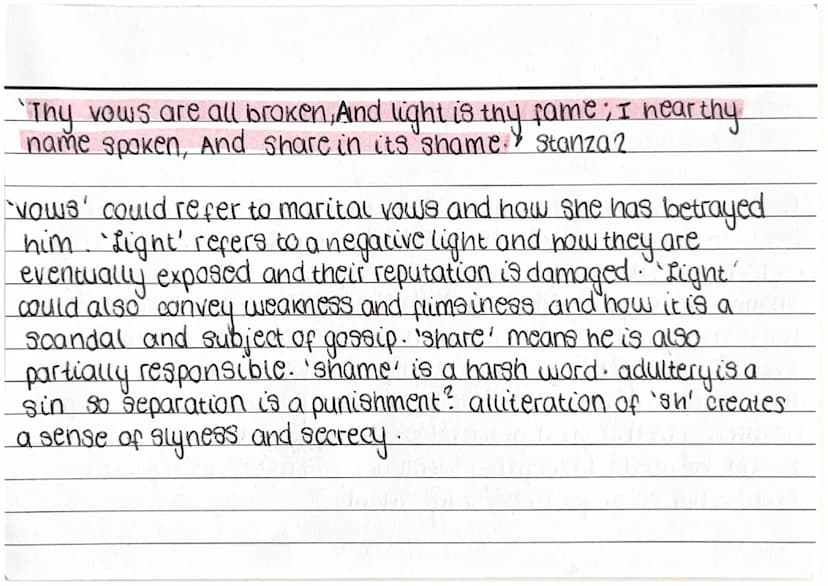 'Thy vows are all broken, And light is thy fame; I hear thy
name spoken, And share in its shame.' Stanza 2
'vows' could refer to marital vows and how she has betrayed
him. 'Light' refers to a negative light and how they are
eventually exposed and their reputation is damaged. 'Light'
could also convey weakness and flimsiness and how it is a
scandal and subject of gossip. 'share' means he is also
partially responsible. 'shame' is a harsh word. adultery is a
sin so separation is a punishment? alliteration of 'sh' creates
a sense of slyness and secrecy.